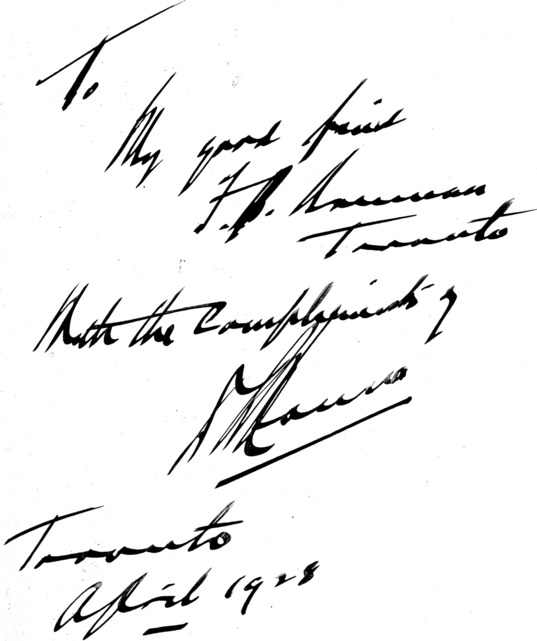 To
My good friend
F.
Toronto
With the Compliments of
Toronto
April 1928